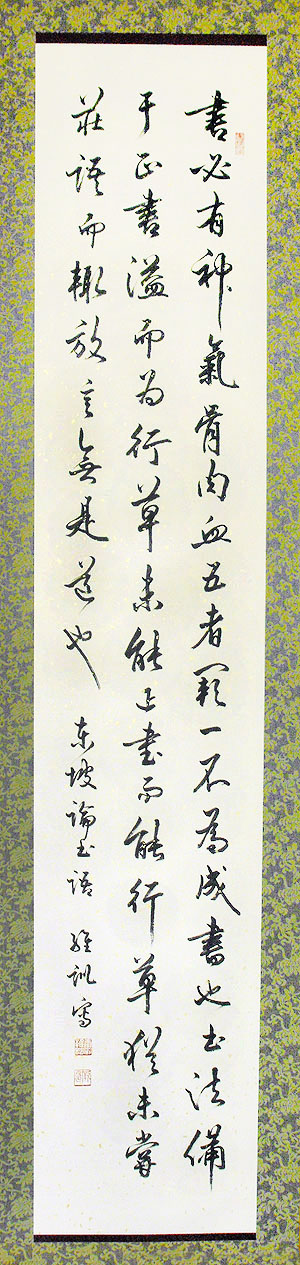 書必有神氣骨肉血五者闕一不為成書也書法備
于正書溢而為行草未能正書而能行草猶未嘗
莊語而輒放言無是道也
东坡論書語 維訓寫